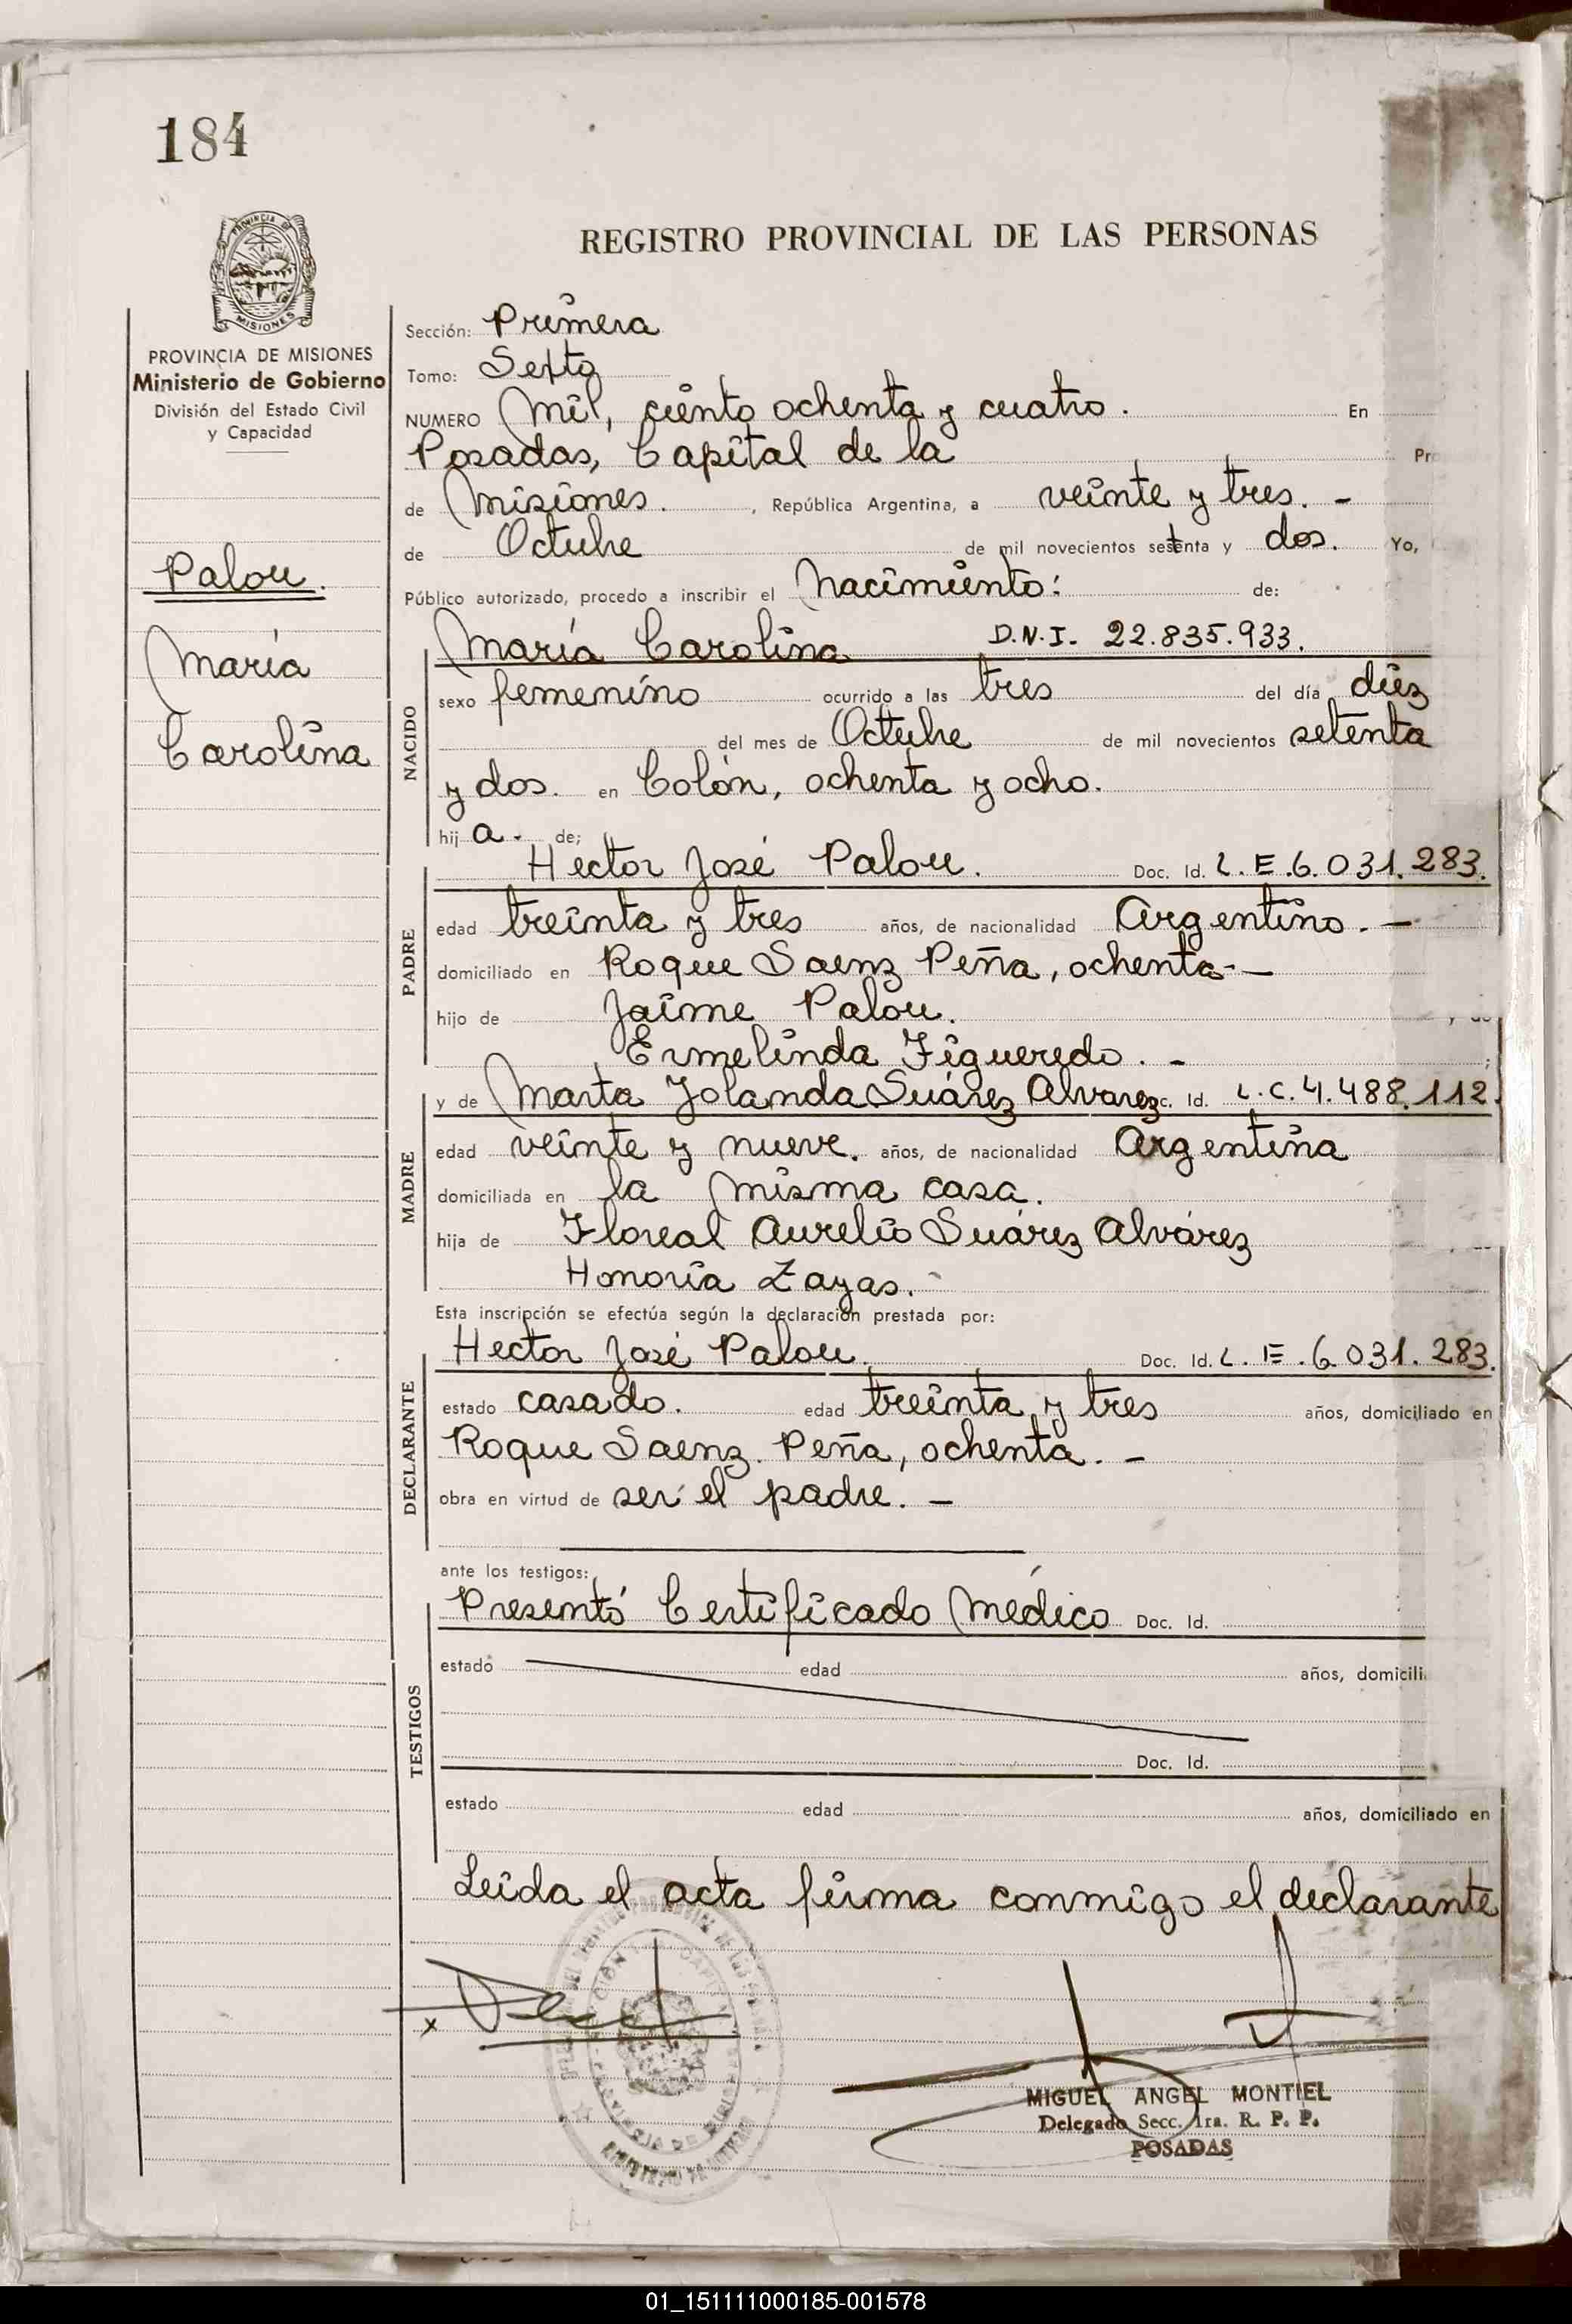 184
REGISTRO PROVINCIAL DE LAS PERSONAS
PROVINCIA
MISIONES
PROVINCIA DE MISIONES
Ministerio de Gobierno
División del Estado Civil
y Capacidad
Palou.
María
Carolina
Sección: Primera
Tomo: Sexto
NUMERO Mil, ciento ochenta y cuatro. En
Posadas, Capital de la
de Misiones. , República Argentina, a veinte y tres. -
de Octubre de mil novecientos setenta y dos. Yo,
Público autorizado, procedo a inscribir el Nacimiento: de:
NACIDO
María Carolina D.N.I. 22.835.933.
sexo femenino ocurrido a las tres del día diez
del mes de Octubre de mil novecientos setenta
y dos. en Colón, ochenta y ocho.
hij a. de;
PADRE
Hector José Palou. Doc. Id. L.E.6.031.283.
edad treinta y tres años, de nacionalidad Argentino. -
domiciliado en Roque Saenz Peña, ochenta. -
hijo de Jaime Palou.
Ermelinda Figueredo. -
MADRE
y de Marta Yolanda Suárez Alvarez c. Id. L.C.4.488.112.
edad veinte y nueve. años, de nacionalidad Argentina
domiciliada en la misma casa.
hija de Floreal Aurelio Suárez Alvárez
Honoria Zayas. -
Esta inscripción se efectúa según la declaración prestada por:
DECLARANTE
Hector José Palou. Doc. Id. L.E.6.031.283.
estado casado. edad treinta y tres años, domiciliado en
Roque Saenz Peña, ochenta. -
obra en virtud de ser el padre. -
ante los testigos:
TESTIGOS
Presentó Certificado Médico Doc. Id.
estado edad años, domicili
Doc. Id.
estado edad años, domiciliado en
Leída el acta firma conmigo el declarante
x
MIGUEL ANGEL MONTIEL
Delegado Secc. 1ra. R. P. P.
POSADAS
01_151111000185-001578